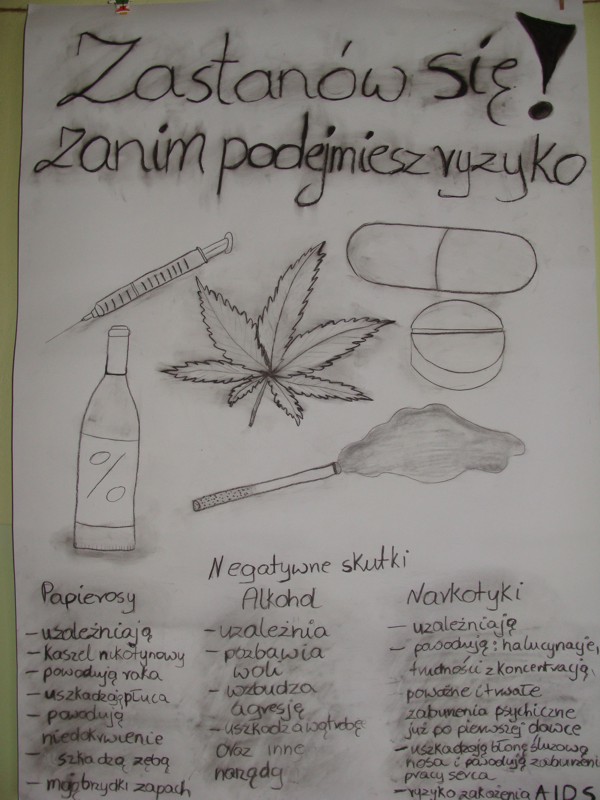 Zastanów się!
zanim podejmiesz ryzyko
%
Negatywne skutki
Papierosy
- uzależniają
- kaszel nikotynowy
- powodują raka
- uszkadzają płuca
- powodują
niedokrwienie
- szkadzą zębą
- mają brzydki zapach
Alkohol
- uzależnia
- pozbawia
woli
- wzbudza
agresję
- uszkadza wątrobę
oraz inne
narządy
Narkotyki
- uzależniają
- powodują: halucynacje,
trudności z koncentracją,
poważne i trwałe
zaburzenia psychiczne
już po pierwszej dawce
- uszkadzają błonę śluzową
nosa i powodują zaburzenia
pracy serca
- ryzyko zakażenia AIDS